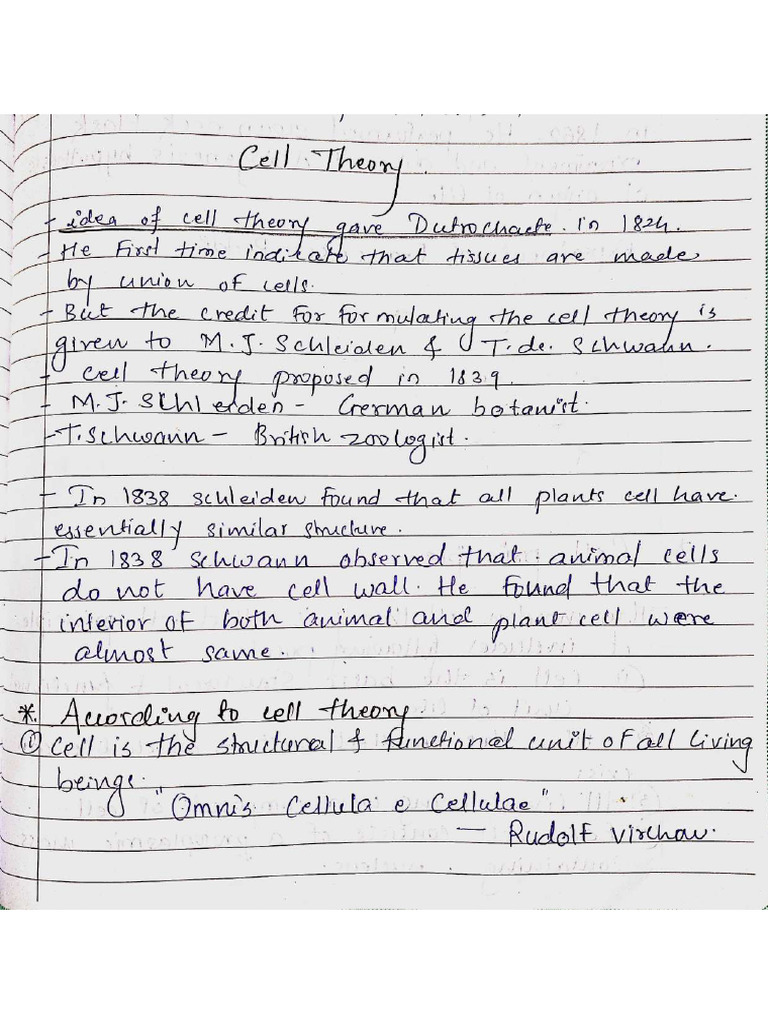 Cell Theory
- idea of cell theory gave Dutrochaete. in 1824.
- He First time indicate that tissues are made
by union of cells.
- But the credit for formulating the cell theory is
given to M. J. Schleiden & T. de. Schwann.
- cell theory proposed in 1839.
- M.J. Schleiden - German botanist.
- T. Schwann - British zoologist.
- In 1838 schleiden found that all plants cell have.
essentially similar structure.
- In 1838 schwann observed that animal cells
do not have cell wall. He found that the
interior of both animal and plant cell were
almost same.
*. According to cell theory
① cell is the structural & functional unit of all living
beings.
"Omnis Cellula e Cellulae"
— Rudolf virchow.